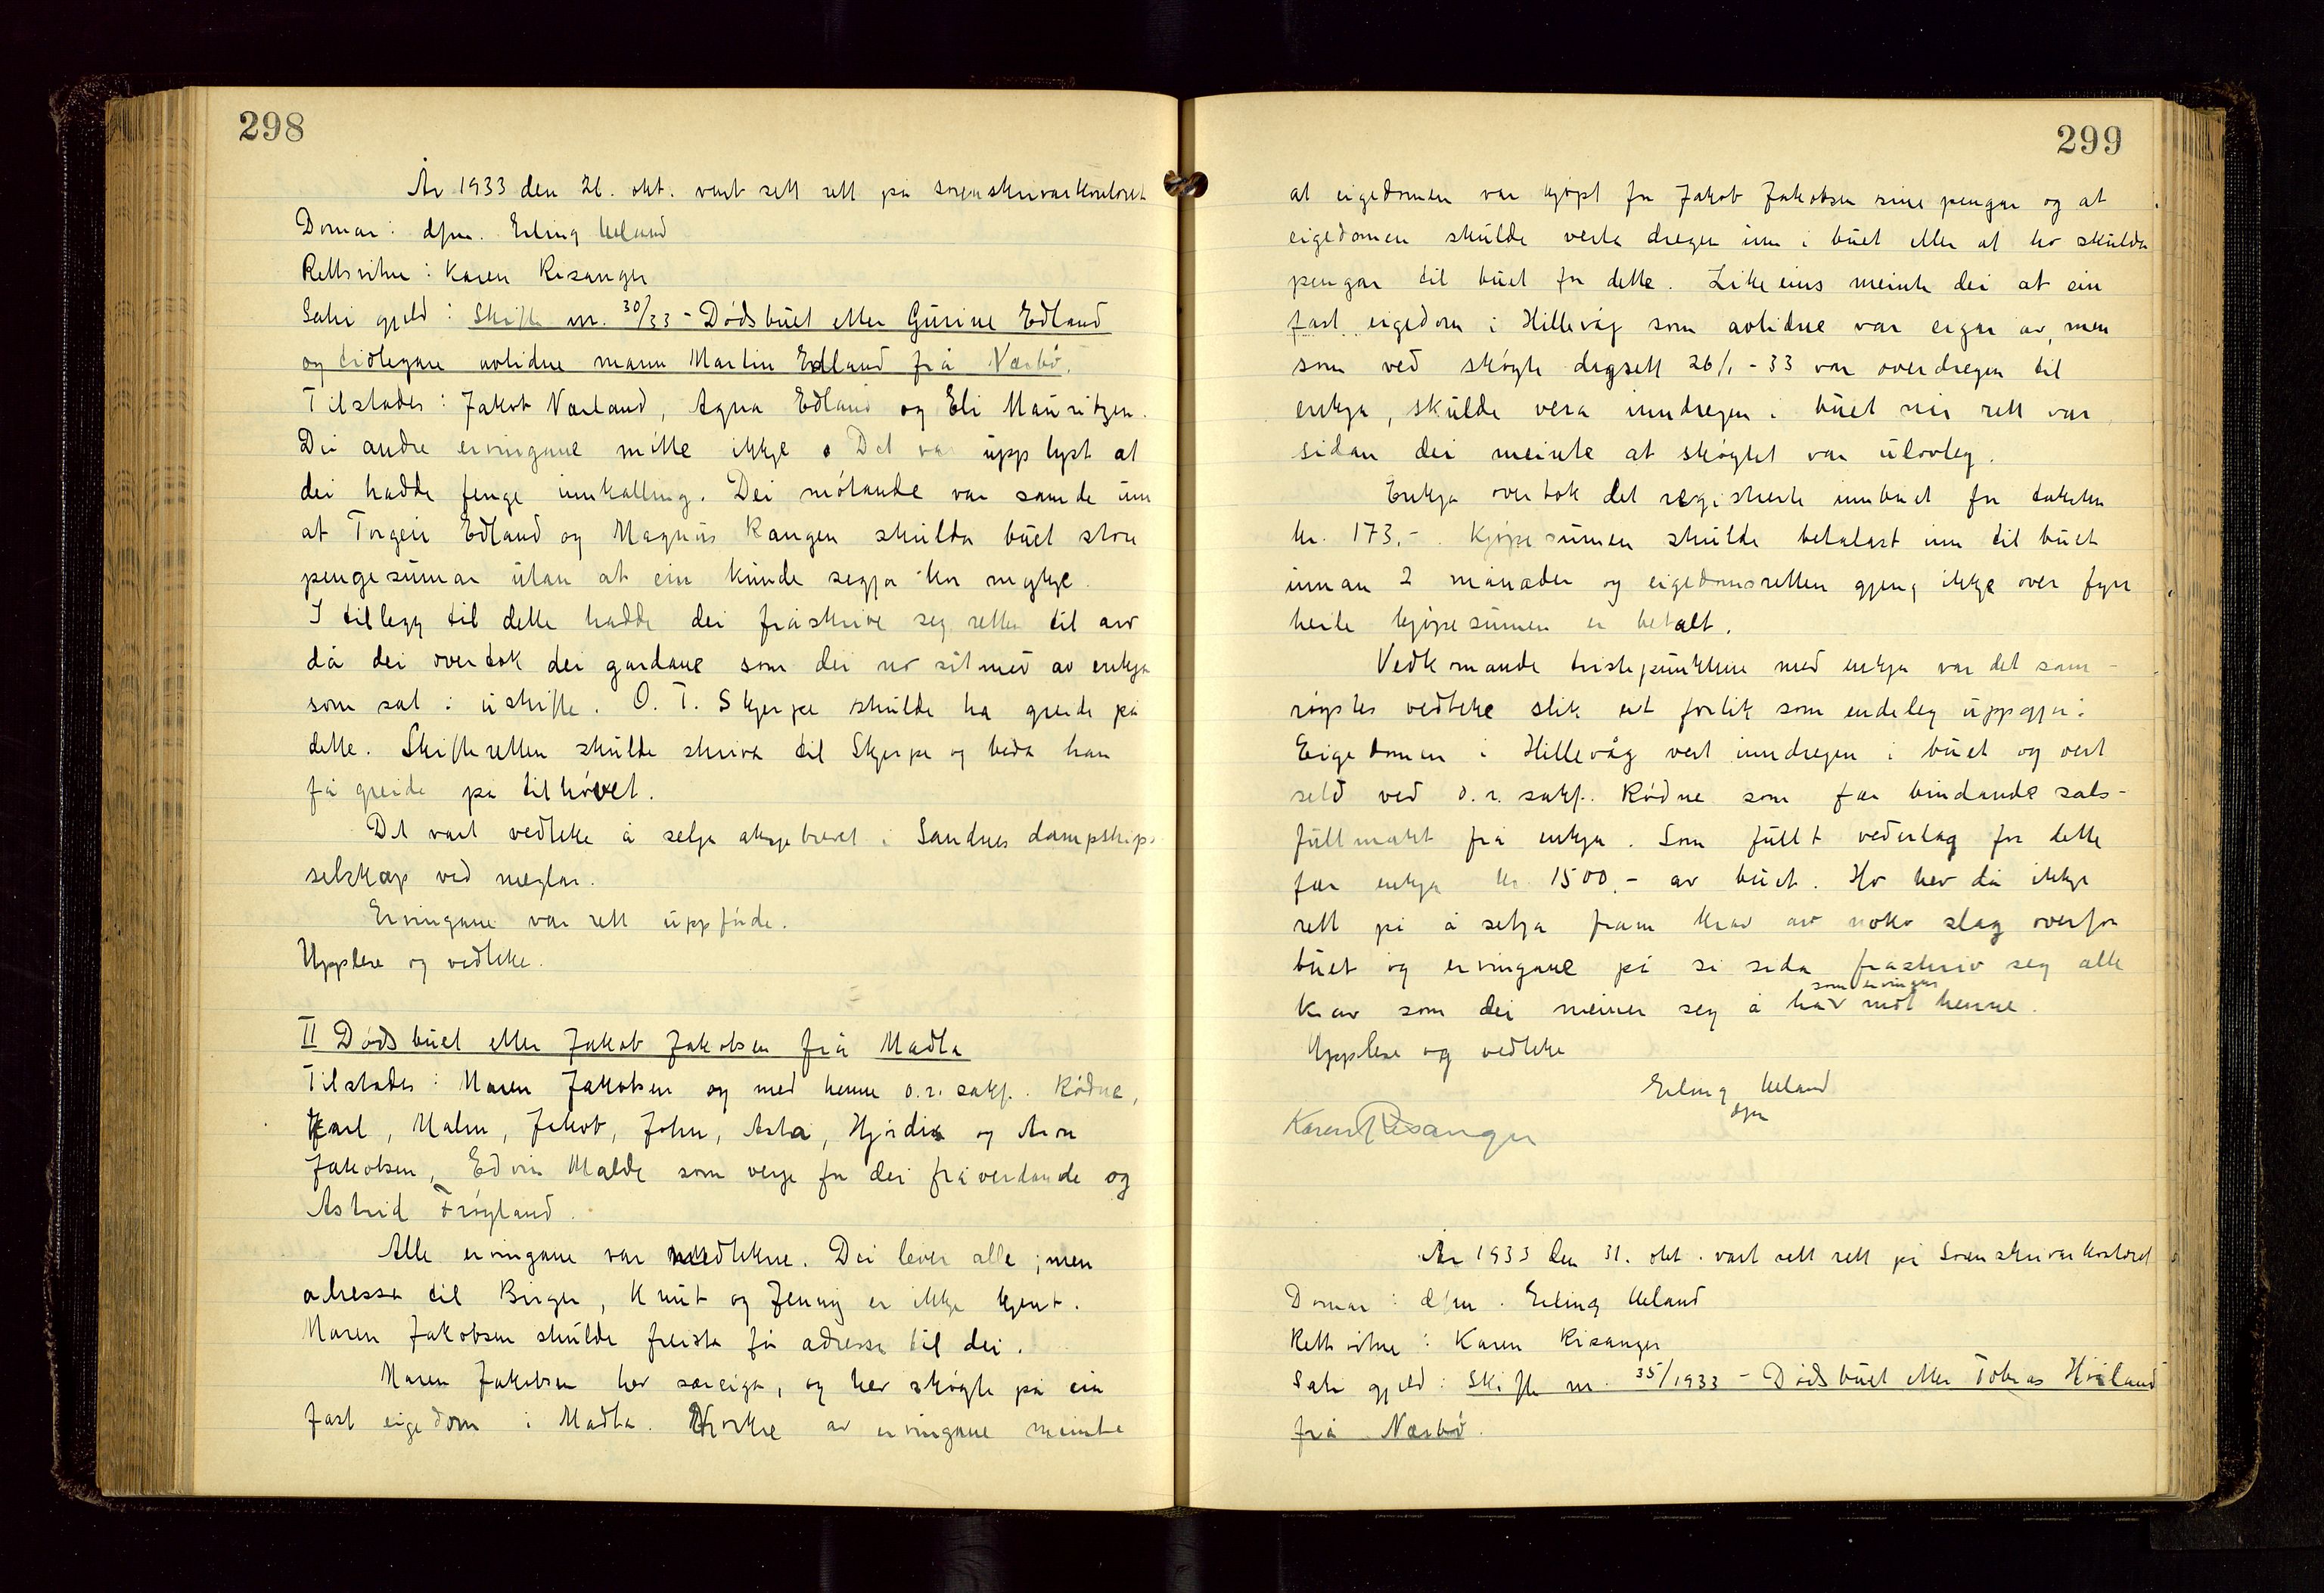 298
År 1933 den 26. okt. vart sett rett på sorenskrivarkontoret
Domar: dfm. Erling Ueland
Rettsvitne: Karen Risanger
Saki gjeld: Skifte nr. 30/33 - Dødsbuet etter Gurine Edland
og tidlegare avlidne mann Martin Edland frå Nærbø.
Tilstades: Jakob Nærland, Agna Edland og Eli Mauritzen.
Dei andre ervingane møtte ikkje. Det var upplyst at
dei hadde fenge innkalling. Dei møtande var samde um
at Torgeir Edland og Magnus Rangen skulda buet store
pengesumar utan at ein kunde segja kor mykje.
I tillegg til dette hadde dei fråskrive seg retten til arv
då dei overtok dei gardane som dei no sit med av enkja
som sat i uskifte. O. T. Skjerpe skulde ha greide på
dette. Skifteretten skulde skriva til Skjerpe og beda han
få greide på tilhøvet.
Det vart vedteke å selja aksjebrevet i Sandnes dampskips
selskap ved meglar.
Ervingane var rett uppførde.
Upplese og vedteke.
II Dødsbuet etter Jakob Jakobsen frå Madla
Tilstades: Maren Jakobsen og med henne o.r. sakf. Rødne,
Karl, Malm, Jakob, John, Asta, Hjørdis og Aron
Jakobsen, Edvin Malde som verje for dei fråverdande og
Astrid Frøyland.
Alle ervingane var medtekne. Dei lever alle; men
adressa til Birger, Knut og Jenny er ikkje kjent.
Maren Jakobsen skulde freista få adressa til dei.
Maren Jakobsen hev særeige, og hev skøyte på ein
fast eigedom i Madla. Nokre av ervingane meinte
299
at eigedomen var kjøpt for Jakob Jakobsen sine pengar og at
eigedomen skulde verta dregen inn i buet eller at ho skulda
pengar til buet for dette. Likeeins meinte dei at ein
fast eigedom i Hillevåg som avlidne var eigar av, men
som ved skøyte dagsett 26/1-33 var overdregen til
enkja, skulde vera inndregen i buet når rett var
sidan dei meinte at skøytet var ulovleg.
Enkja overtok det registrerte innbuet for taksten
kr. 173,-. Kjøpesumen skulde betalast inn til buet
innan 2 månader og eigedomsretten gjeng ikkje over fyrr
heile kjøpesumen er betalt.
Vedkomande tvistepunktene med enkja var det sam-
røystes vedteke slik eit forlik som endeleg uppgjer:
Eigedomen i Hillevåg vert inndregen i buet og vert
seld ved o.r. sakf. Rødne som fær bindande sals-
fullmakt frå enkja. Som fullt vederlag for dette
fær enkja kr. 1500,- av buet. Ho hev då ikkje
rett på å setja fram krav av noko slag overfor
buet og ervingane på si sida fråskriv seg alle
krav som dei meiner seg å ha som ervingar mot henne.
Upplese og vedteke
Erling Ueland
dfm
Karen Risanger
År 1933 den 31. okt. vart sett rett på Sorenskrivarkontoret
Domar: dfm. Erling Ueland
Rettsvitne: Karen Risanger
Saki gjeld: Skifte nr. 35/1933 - Dødsbuet etter Tobias Håland
frå Nærbø.